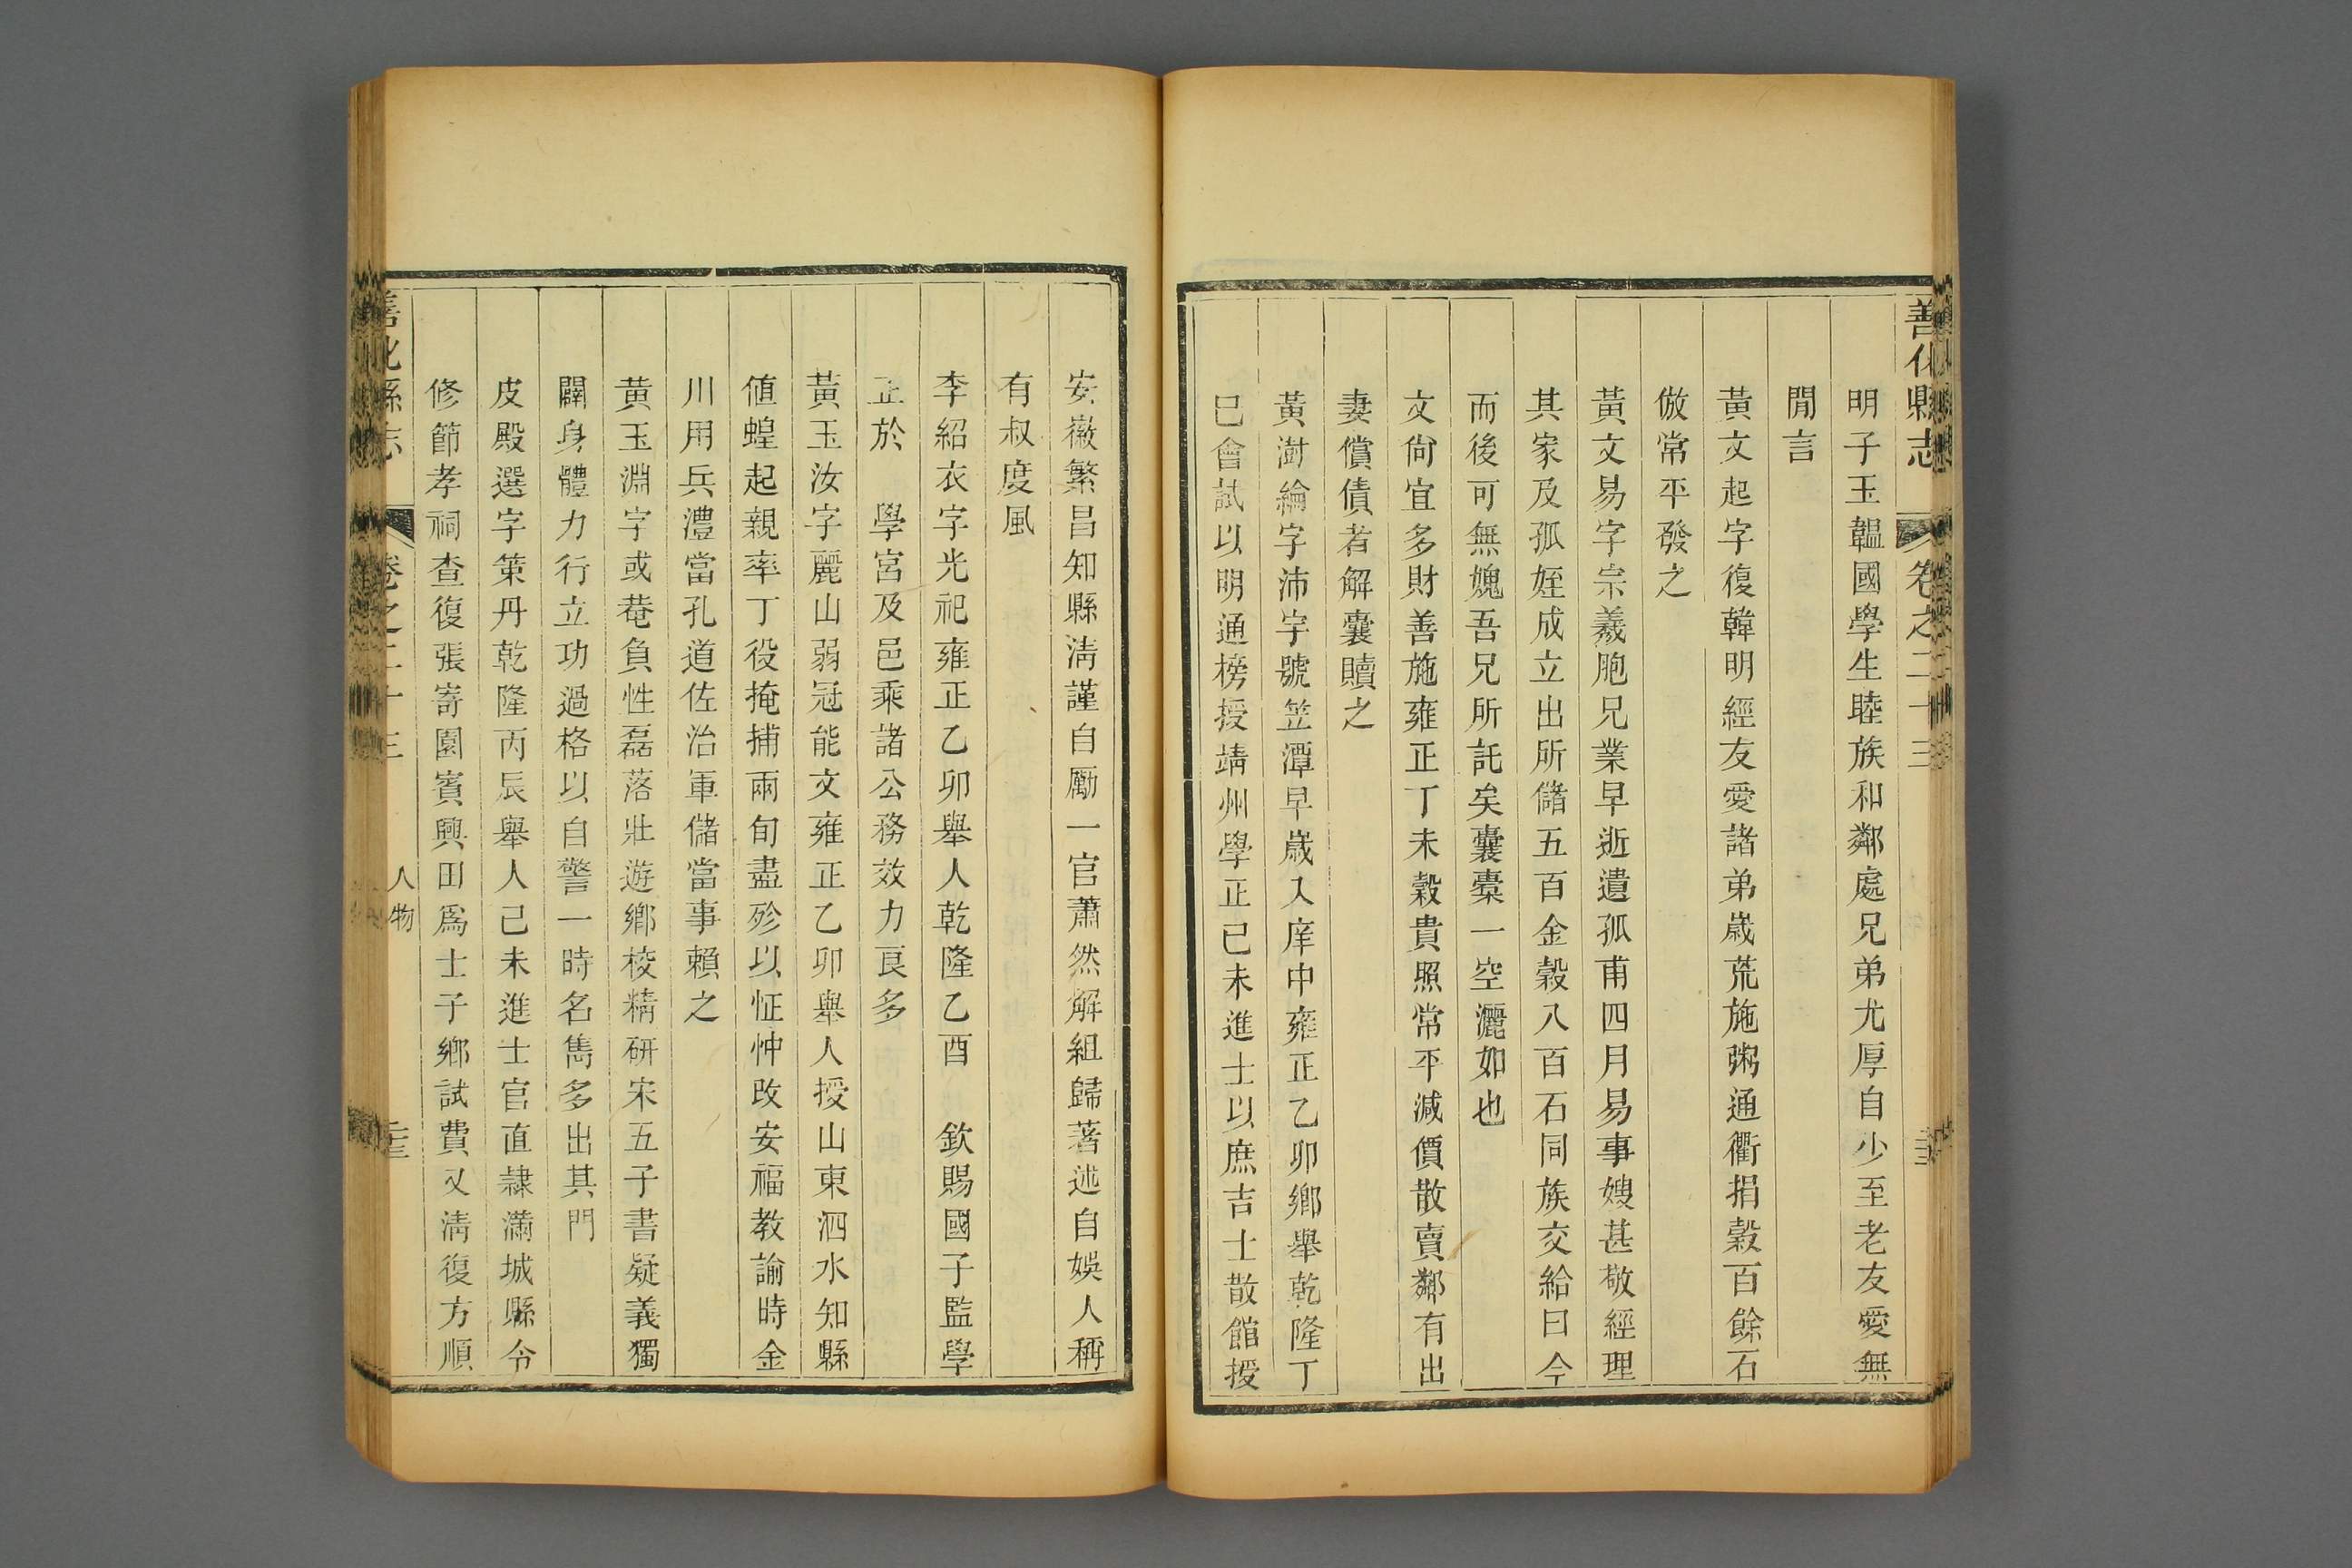 善化縣志 卷之二十三
明子玉韞國學生睦族和鄰處兄弟尤厚自少至老友愛無
閒言
黃文起字復韓明經友愛諸弟歲荒施粥通衢捐穀百餘石
倣常平發之
黃文易字宗羲胞兄業早逝遺孤甫四月易事嫂甚敬經理
其家及孤姪成立出所儲五百金穀八百石同族交給曰今
而後可無媿吾兄所託矣囊橐一空灑如也
文尙宜多財善施雍正丁未穀貴照常平減價散賣鄰有出
妻償債者解囊贖之
黃澍綸字沛宇號笠潭早歲入庠中雍正乙卯鄉舉乾隆丁
巳會試以明通榜授靖州學正已未進士以庶吉士散館授
安徽繁昌知縣淸謹自勵一官蕭然解組歸著述自娛人稱
有叔度風
李紹衣字光祀雍正乙卯舉人乾隆乙酉 欽賜國子監學
正於 學宮及邑乘諸公務效力良多
黃玉汝字麗山弱冠能文雍正乙卯舉人授山東泗水知縣
値蝗起親率丁役掩捕兩旬盡殄以怔忡改安福教諭時金
川用兵澧當孔道佐治軍儲當事賴之
黃玉淵字或菴負性磊落壯遊鄉校精研宋五子書疑義獨
闢身體力行立功過格以自警一時名雋多出其門
皮殿選字策丹乾隆丙辰舉人己未進士官直隸滿城縣令
修節孝祠查復張寄園賓興田爲士子鄉試費又淸復方順
善化縣志 卷之二十三 人物